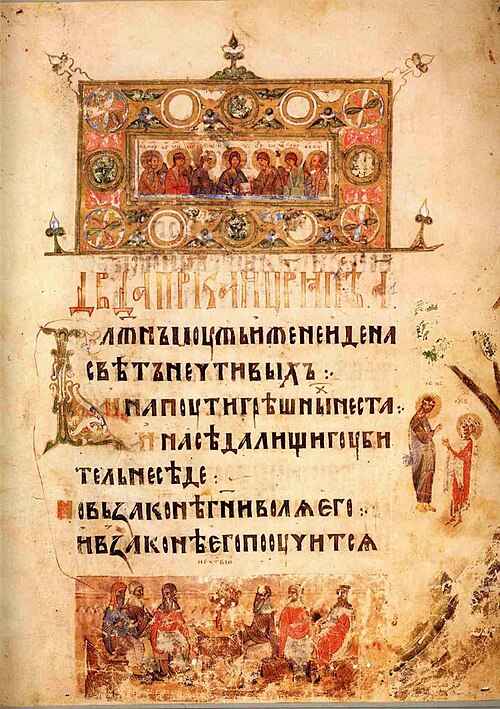 ДВДА ПРКА И ЦРѦ ПѢ А
БЛЖНЪ МОУЖЬ ИЖЕ НЕ ИДЕ НА
СВѢТЪ НЕЧТИВЫХЪ :·
И НА ПОУТИ ГРѢШНЫХ НЕ СТА :·
И НА СѢДАЛИЩИ ГОУБИ
ТЕЛЬ НЕ СѢДЕ :
НО ВЬ ЗАКОНѢ ГНИ ВОЛѦ ЕГО :·
И В ЗАКОНѢ ЕГО ПООУЧИТСѦ